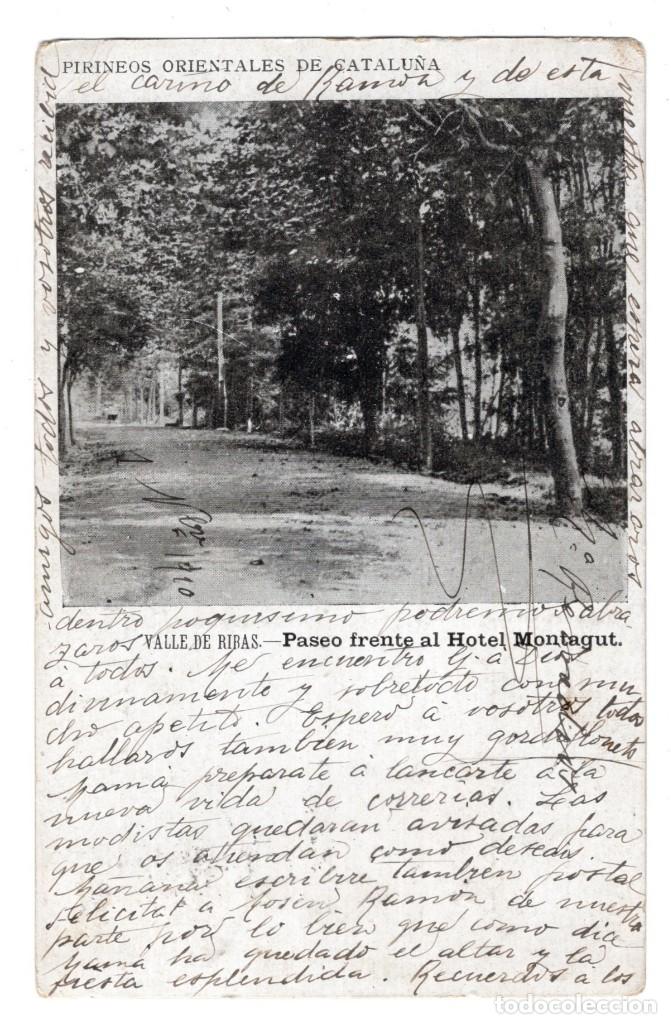 PIRINEOS ORIENTALES DE CATALUÑA
VALLE DE RIBAS.—Paseo frente al Hotel Montagut.
dentro poquisimo podremos abra
zaros
á todos. Me encuentro g. á Dios
divinamente y sobretodo con mu
cho apetito. Espero á vosotros todos
hallaros tambien muy gorditos
Mamá preparate á lanzarte á la
nueva vida de correrias. Las
modistas quedaran avisadas para
que os atiendan como deseais.
Mañana escribire tambien postal
felicita á Mosen Ramon de nuestra
parte por lo bien que como dice
Mamá ha quedado el altar y la
fiesta esplendida. Recuerdos á los
amigos todos y vosotros recibid
el cariño de Ramon y de esta
vuestra que espera abrazaros
1910
todocoleccion
todocoleccion.net